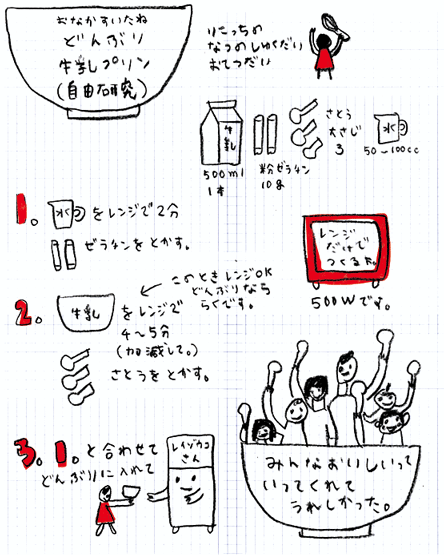 おなかすいたね
どんぶり
牛乳プリン
(自由研究)
りこっちの
なつのしゅくだい
おてつだい
牛乳
500ml
1本
粉ゼラチン
10g
さとう
大さじ
3
水
50〜100cc
1。
水
をレンジで2分
ゼラチンをとかす。
レンジ
だけで
つくるよ。
500Wです。
このときレンジOK
どんぶりなら
らくです。
2。
牛乳
をレンジで
4〜5分
(加減して。)
さとうをとかす。
3。1。と合わせて
どんぶりに入れて
レイゾウコ
さん
みんなおいしいって
いってくれて
うれしかった。